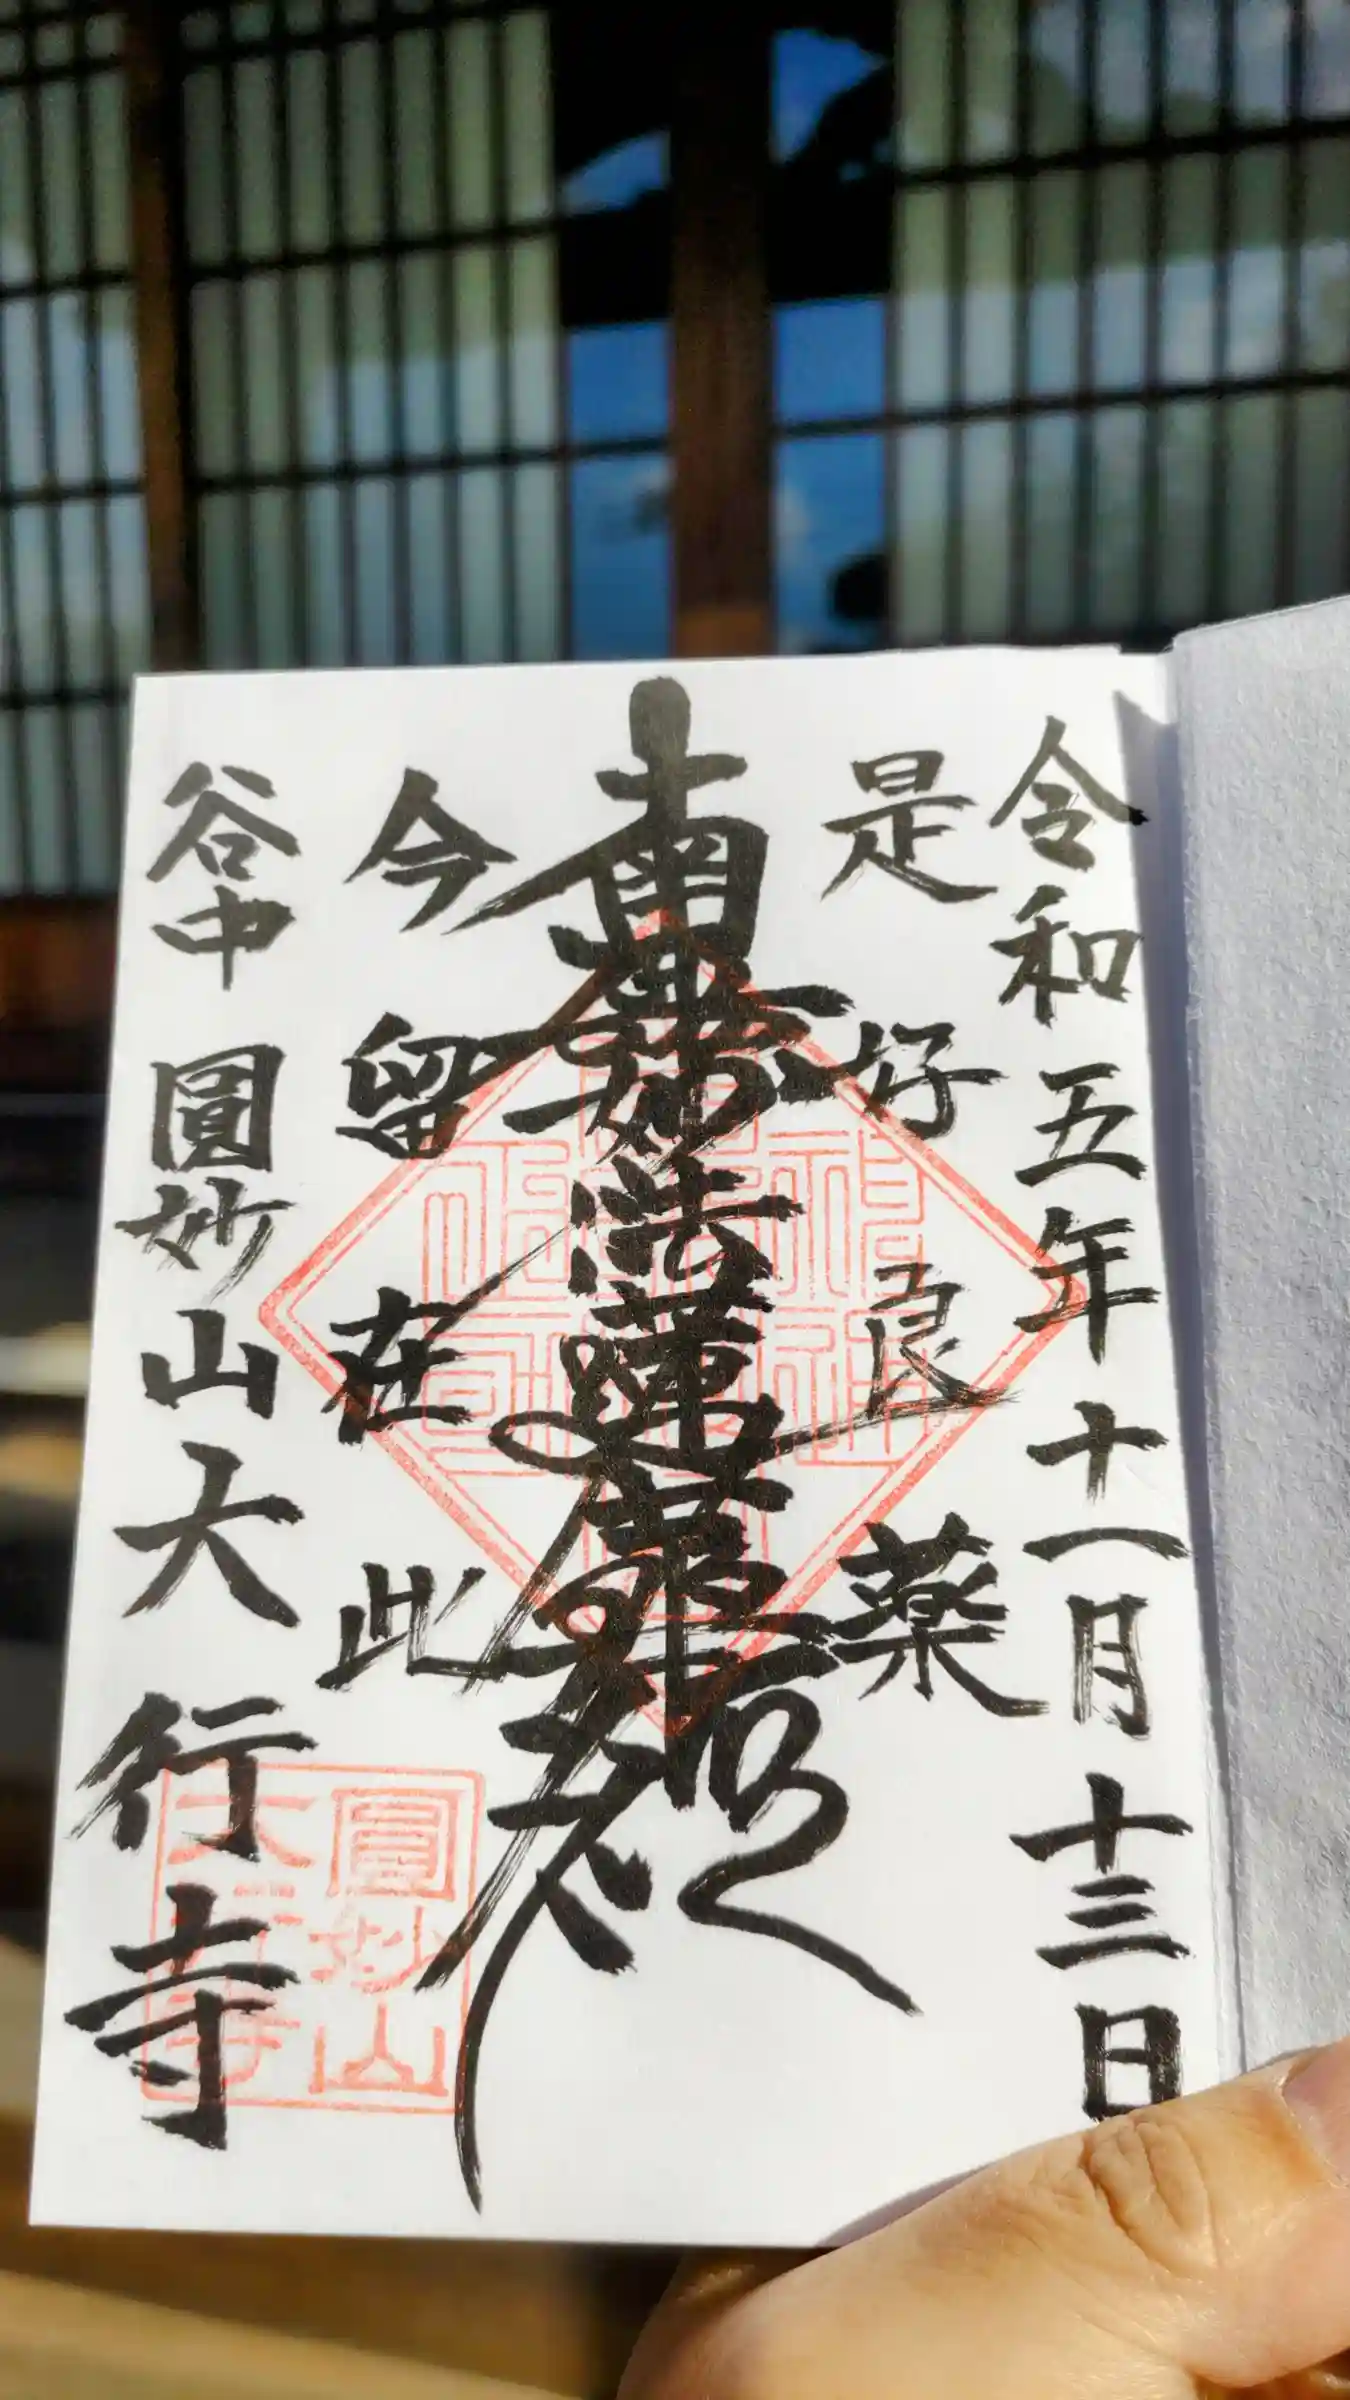 令和五年十一月十三日
是好良薬
南無妙法蓮華経
今留在此
谷中 圓妙山大行寺
圓妙山
大行寺